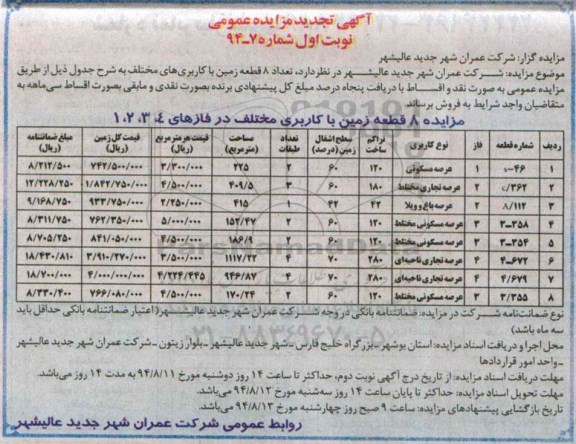 آگهی تجدید مزایده عمومی
نوبت اول شماره ۷ـ۹۴
مزایده گزار: شرکت عمران شهر جدید عالیشهر
موضوع مزایده: شرکت عمران شهر جدید عالیشهر در نظر دارد، تعداد ۸ قطعه زمین با کاربری‌های مختلف به شرح جدول ذیل از طریق
مزایده عمومی به صورت نقد و اقساط با دریافت پنجاه درصد مبلغ کل پیشنهادی برنده بصورت نقدی و مابقی بصورت اقساط سی‌ماهه به
متقاضیان واجد شرایط به فروش برساند.
مزایده ۸ قطعه زمین با کاربری مختلف در فازهای ۴، ۳، ۲، ۱
ردیف شماره قطعه فاز نوع کاربری تراکم ساخت سطح اشغال زمین (درصد) تعداد طبقات مساحت (مترمربع) قیمت هر مترمربع (ریال) قیمت کل زمین (ریال) مبلغ ضمانتنامه (ریال)
۱ ۱ عرصه مسکونی ۱۲۰ ۶۰ ۲ ۲۲۵ ۳/۳۰۰/۰۰۰ ۷۴۲/۵۰۰/۰۰۰ ۸/۲۱۲/۵۰۰
۲ ۲ عرصه تجاری مختلط ۱۸۰ ۶۰ ۳ ۴۰۹/۵ ۴/۵۰۰/۰۰۰ ۱/۸۴۲/۷۵۰/۰۰۰ ۱۲/۲۲۸/۲۵۰
۳ ۸/۱۱۲ ۲ عرصه باغ و ویلا ۴۲ ۴۲ ۱ ۴۱۵ ۲/۲۵۰/۰۰۰ ۹۳۳/۷۵۰/۰۰۰ ۹/۱۶۸/۷۵۰
۴ ۳ـ۳۵۸ ۳ عرصه مسکونی مختلط ۱۲۰ ۶۰ ۲ ۱۵۲/۴۷ ۵/۰۰۰/۰۰۰ ۷۶۲/۳۵۰/۰۰۰ ۸/۳۱۱/۷۵۰
۵ ۳ـ۳۵۴ ۳ عرصه مسکونی مختلط ۱۲۰ ۶۰ ۲ ۱۸۶/۹ ۴/۵۰۰/۰۰۰ ۸۴۱/۰۵۰/۰۰۰ ۸/۷۰۵/۲۵۰
۶ ۴ـ۶۷۲ ۴ عرصه تجاری ناحیه‌ای ۲۸۰ ۷۰ ۴ ۱۱۱۷/۲۲ ۳/۵۰۰/۰۰۰ ۳/۹۱۰/۲۷۰/۰۰۰ ۱۸/۴۳۰/۸۱۰
۷ ۴/۶۷۹ ۴ عرصه تجاری ناحیه‌ای ۲۸۰ ۷۰ ۴ ۹۴۶/۸۷ ۴/۲۲۴/۴۴۵ ۴/۰۰۰/۰۰۰/۰۰۰ ۱۸/۷۰۰/۰۰۰
۸ ۳/۳۵۵ ۳ عرصه مسکونی مختلط ۱۲۰ ۶۰ ۲ ۱۷۰/۲۴ ۴/۵۰۰/۰۰۰ ۷۶۶/۰۸۰/۰۰۰ ۸/۳۳۰/۴۰۰
نوع ضمانت‌نامه شرکت در مزایده: ضمانتنامه بانکی در وجه شرکت عمران شهر جدید عالیشهر (اعتبار ضمانتنامه بانکی حداقل باید
سه ماه باشد)
محل اجرا و دریافت اسناد مزایده: استان بوشهر ـ بزرگراه خلیج فارس ـ شهر جدید عالیشهر ـ بلوار زیتون ـ شرکت عمران شهر جدید عالیشهر
ـ واحد امور قراردادها
مهلت دریافت اسناد مزایده: از تاریخ درج آگهی نوبت دوم، حداکثر تا ساعت ۱۴ روز دوشنبه مورخ ۹۴/۸/۱۱ به مدت ۱۴ روز می‌باشد.
مهلت تحویل اسناد مزایده: حداکثر تا پایان ساعت ۱۴ روز سه‌شنبه مورخ ۹۴/۸/۱۲ می‌باشد.
تاریخ بازگشایی پیشنهادهای مزایده: ساعت ۹ صبح روز چهارشنبه مورخ ۹۴/۸/۱۳ می‌باشد.
روابط عمومی شرکت عمران شهر جدید عالیشهر